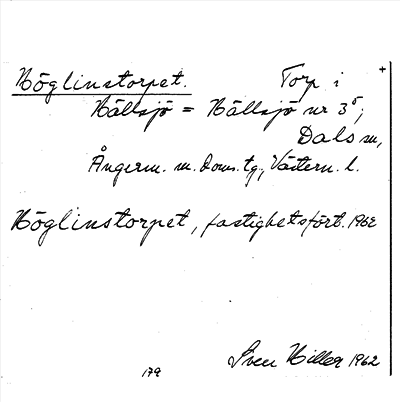 Höglinstorpet. Torp i +
Hällsjö = Hällsjö nr 3⁵;
Dals sn,
Ångerm. m. doms. tg., Västern. l.
Höglinstorpet, fastighetsört. 1962
179 Sven Hiller 1962